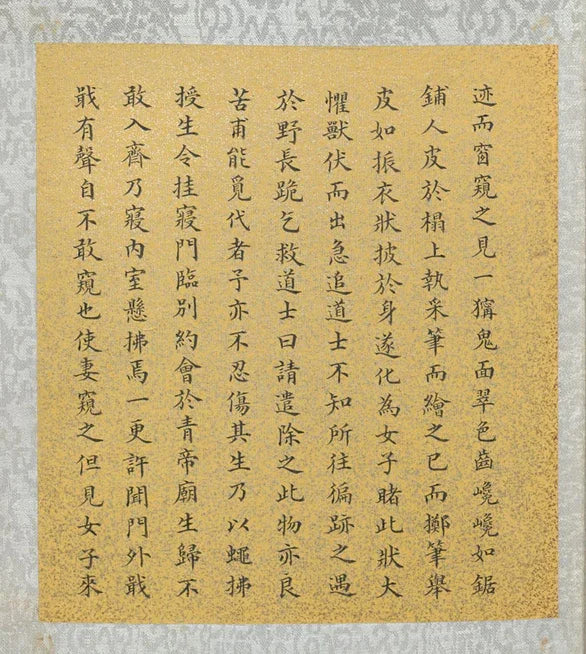 迹而窗窺之見一獰鬼面翠色齒巉巉如鋸
鋪人皮於榻上執采筆而繪之已而擲筆舉
皮如振衣狀披於身遂化為女子睹此狀大
懼獸伏而出急追道士不知所往徧跡之遇
於野長跪乞救道士曰請遣除之此物亦良
苦甫能覓代者予亦不忍傷其生乃以蠅拂
授生令挂寢門臨別約會於青帝廟生歸不
敢入齋乃寢內室懸拂焉一更許聞門外戢
戢有聲自不敢窺也使妻窺之但見女子來